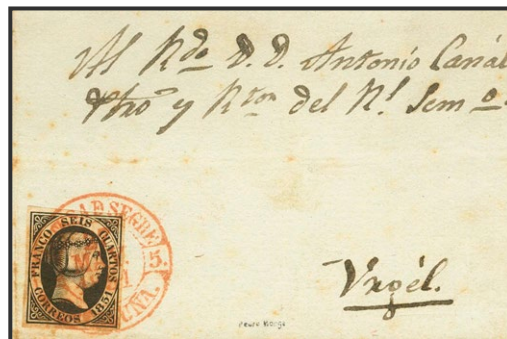 Al Rdo D. D. Antonio Canál
Pbro y Rtor del Rl. Semo
SEGRE
5.
FRANCO SEIS CUARTOS
CORREOS 1851
Urgél.